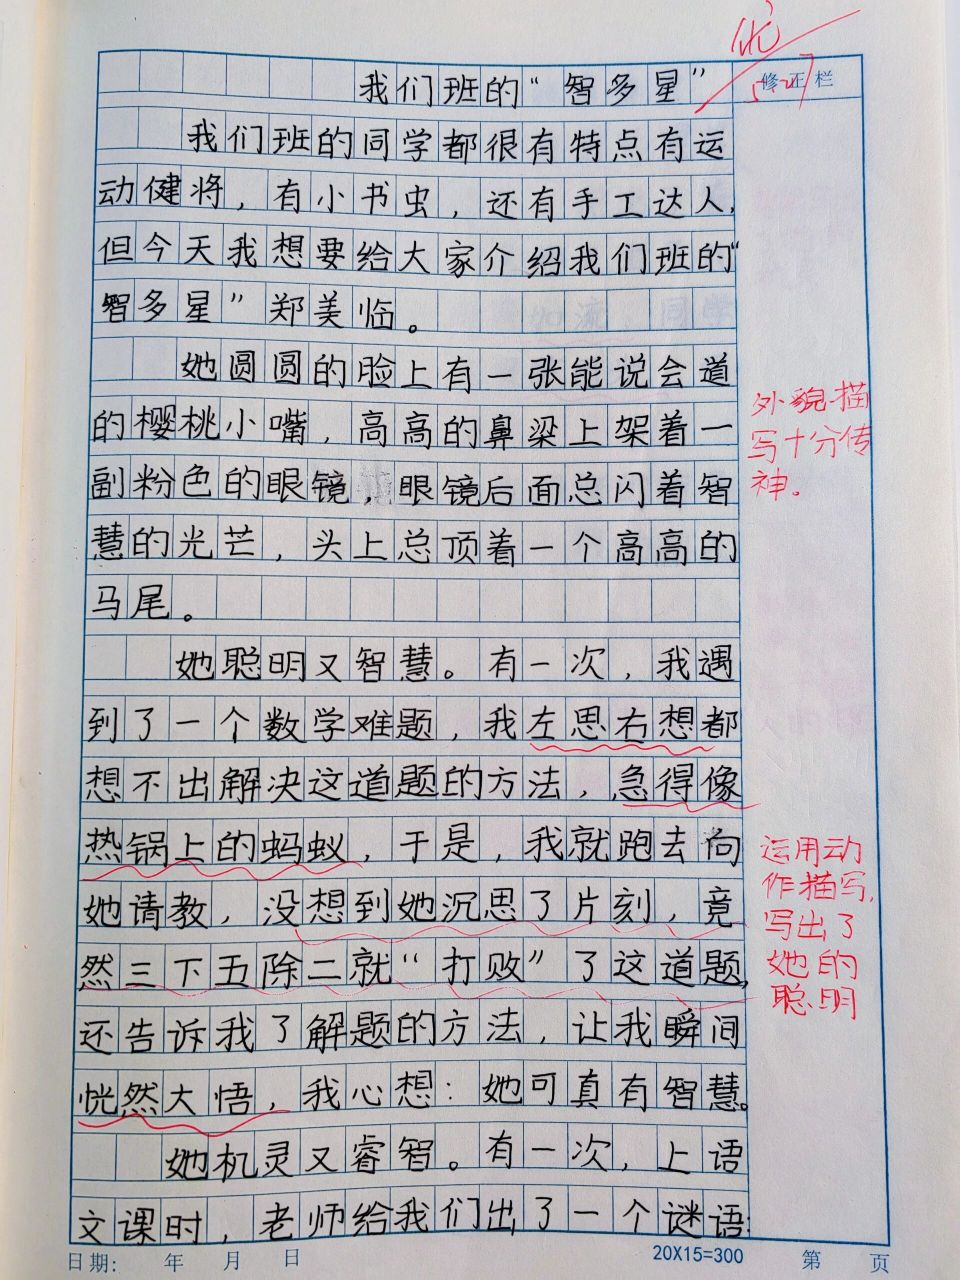 优
5.27
修正栏
我们班的“智多星”
我们班的同学都很有特点有运
动健将，有小书虫，还有手工达人，
但今天我想要给大家介绍我们班的“
智多星”郑美临。
她圆圆的脸上有一张能说会道
的樱桃小嘴，高高的鼻梁上架着一
副粉色的眼镜，眼镜后面总闪着智
慧的光芒，头上总顶着一个高高的
马尾。
她聪明又智慧。有一次，我遇
到了一个数学难题，我左思右想都
想不出解决这道题的方法，急得像
热锅上的蚂蚁，于是，我就跑去向
她请教，没想到她沉思了片刻，竟
然三下五除二就“打败”了这道题，
还告诉我了解题的方法，让我瞬间
恍然大悟，我心想：她可真有智慧。
她机灵又睿智。有一次，上语
文课时，老师给我们出了一个谜语：
外貌描
写十分传
神。
运用动
作描写，
写出了
她的
聪明
日期： 年 月 日
20X15=300
第 页